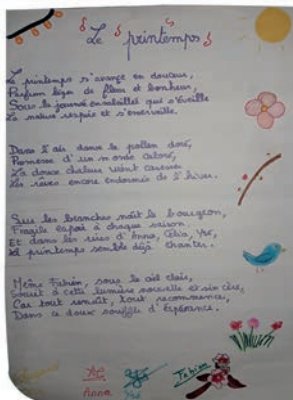 "Le printemps"
Le printemps s'avance en douceur,
Parfum léger de fleur et bonheur,
Sous la journée ensoleillée qui s'éveille
La nature respire et s'émerveille.
Dans l'air danse le pollen doré,
Promesse d'un monde coloré,
La douce chaleur vient caresser
Les rêves encore endormis de l'hiver.
Sur les branches naît le bourgeon,
Fragile espoir à chaque saison.
Et dans les rires d'Anna, Célia, Yse,
Le printemps semble déjà chanter.
Même Fabien, sous le ciel clair,
Sourit à cette lumière nouvelle et sincère,
Car tout renaît, tout recommence,
Dans ce doux souffle d'Espérance.
Fabien
Anna